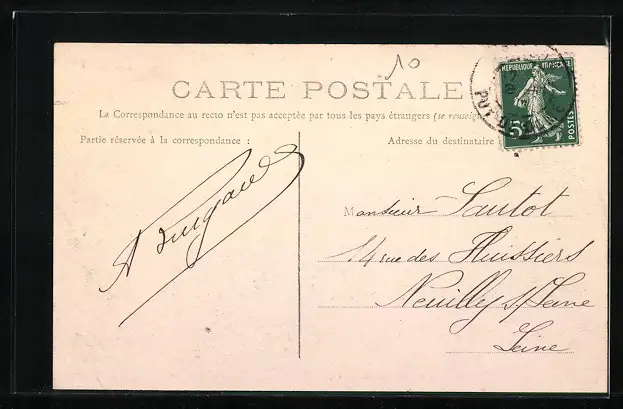 10
CARTE POSTALE
La Correspondance au recto n'est pas acceptée par tous les pays étrangers (se renseign
Partie réservée à la correspondance :
Adresse du destinataire
REPUBLIQUE FRANÇAISE
5c
POSTES
Monsieur Sautot
14 rue des Huissiers
Neuilly s/ Seine
Seine